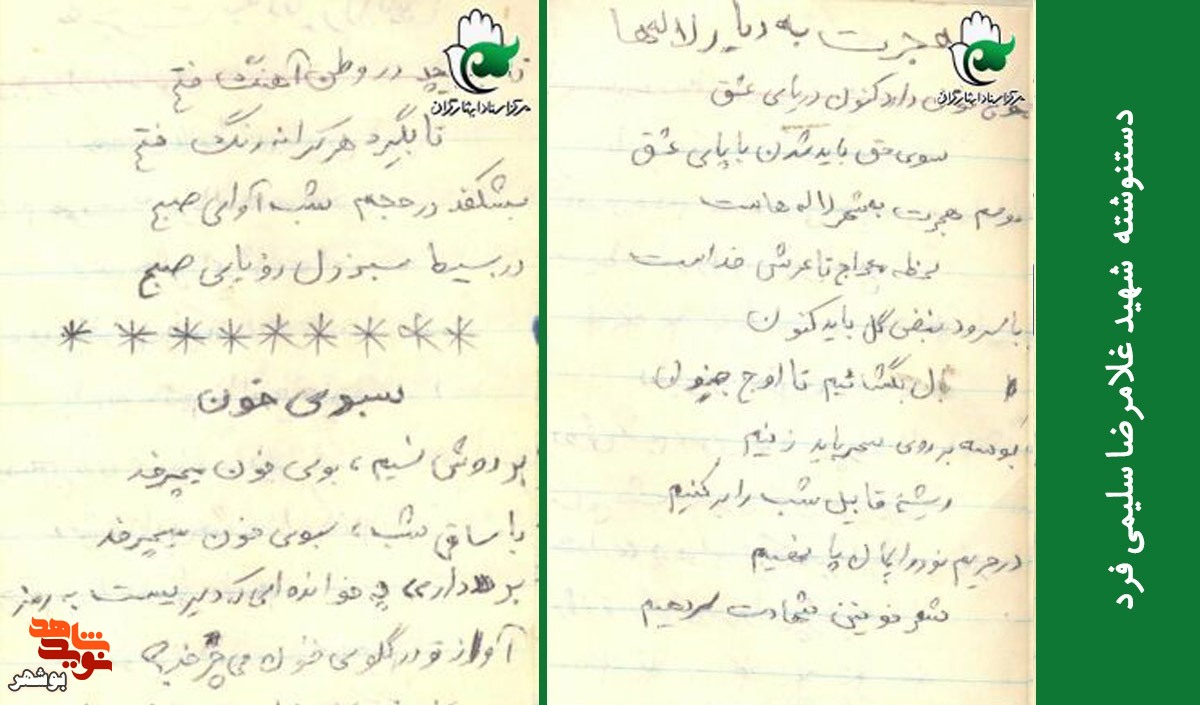 هجرت به دیار لاله‌ها
دارد کنون دریای عشق
سوی حق باید شدن با پای عشق
موسم هجرت به شهر لاله هاست
لحظه معراج تا عرش خداست
با سرود نبض گل باید کنون
بال بگشائیم تا اوج جنون
بوسه بر روی سحر باید زنیم
ریشهٔ قابیل شب را بر کنیم
در حریم نور و ایمان پا نهیم
شعر خونین شهادت سر دهیم
در وطن آهنگ فتح
تا بگیرد هر کرانه رنگ فتح
بشکفد در حجم شب آوای صبح
در بسیط سبز دل رؤیای صبح
* * * * * * * * *
سبوی خون
بر دوش نسیم، بوی خون میچرخد
با ساقی شب، سبوی خون میچرخد
بر دار، چه خوانده‌ای که دیریست به رمز
آواز تو در گلوی خون می چرخد؟
دستنوشته شهید غلامرضا سلیمی فرد
مرکز اسناد ایثارگران
مرکز اسناد ایثارگران
نوید شاهد
بوشهر